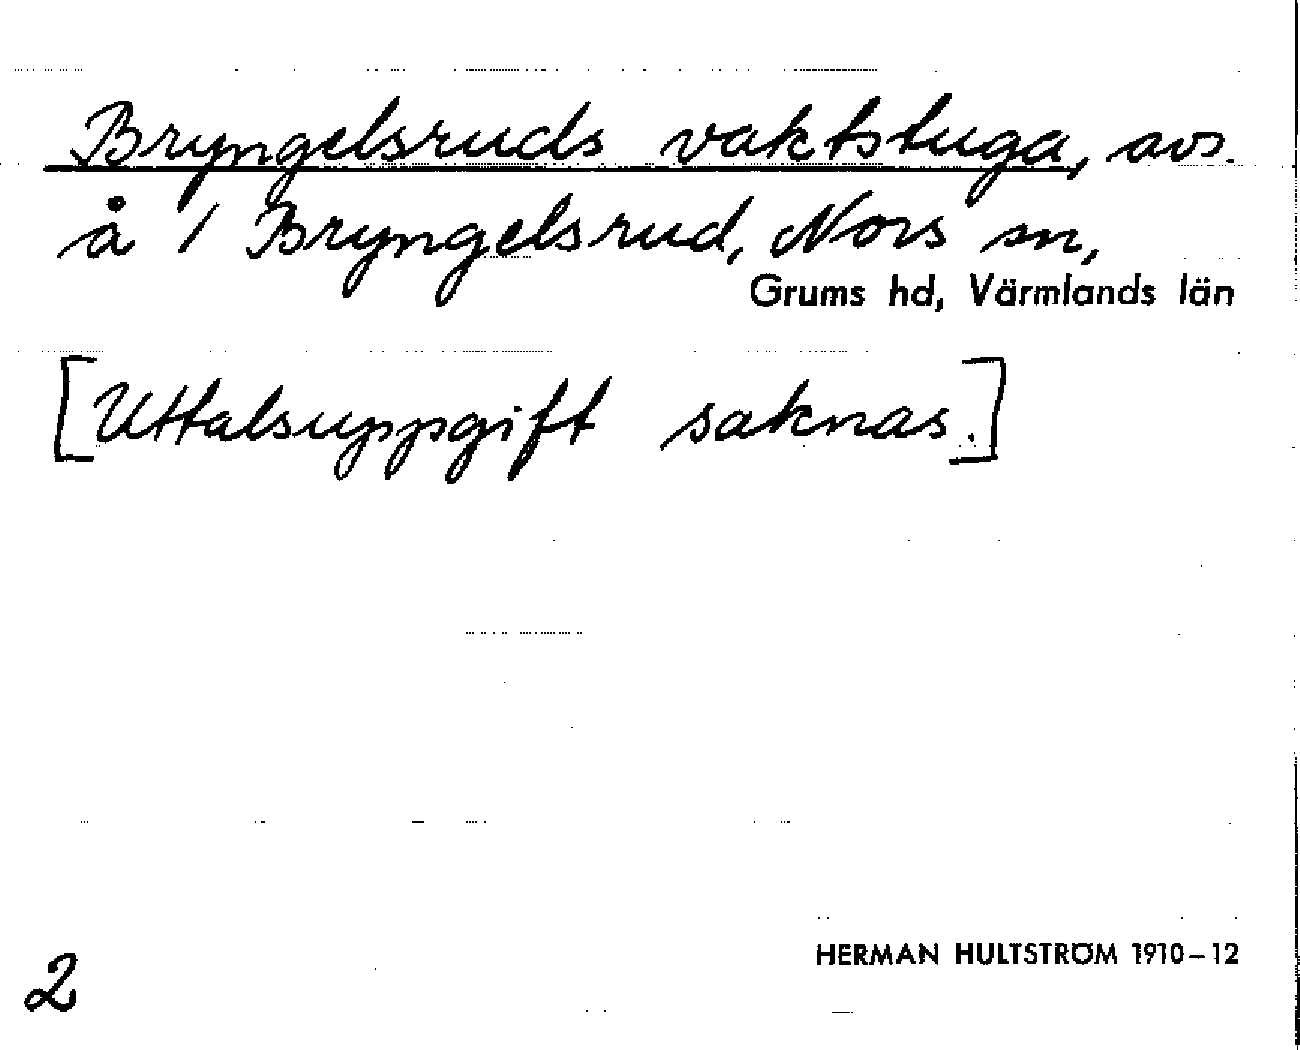 Bryngelsruds vaktstuga, avs.
å 1 Bryngelsrud, Nors sn,
Grums hd, Värmlands län
[Uttalsuppgift saknas.]
HERMAN HULTSTRÖM 1910–12
2